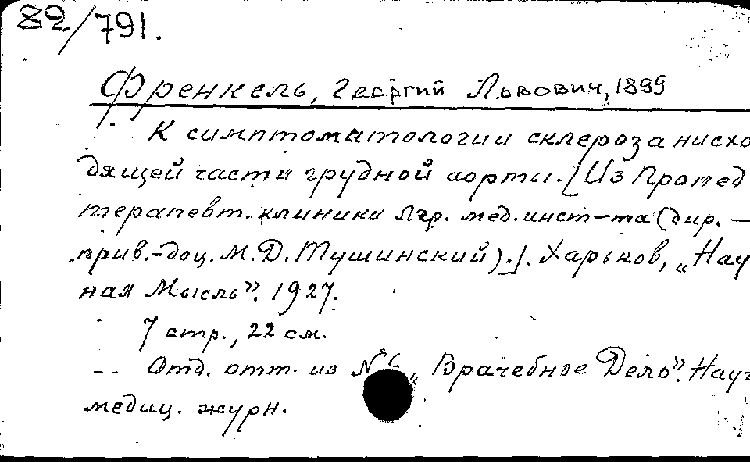 82/791.
Френкель, Георгий Львович, 1899
К симптоматологии склероза нисхо
дящей части грудной аорты. [Из Пропед
терапевт. клиники Лгр. мед. инст-та (дир. —
прив.-доц. М. Д. Тушинский).]. Харьков, „Нау
ная Мысль". 1927.
7 стр., 22 см.
— Отд. отт. из №6 „Врачебное Дело". Науч
медиц. журн.